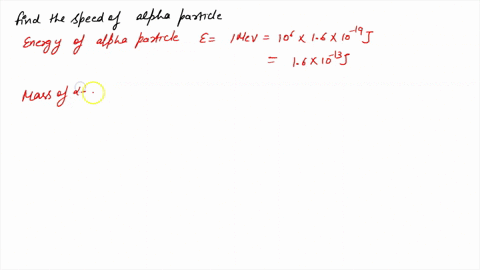 find the speed of alpha particle
Energy of alpha particle E = 1 MeV = 10⁶ × 1.6 × 10⁻¹⁹ J
= 1.6 × 10⁻¹³ J
Mass of α..